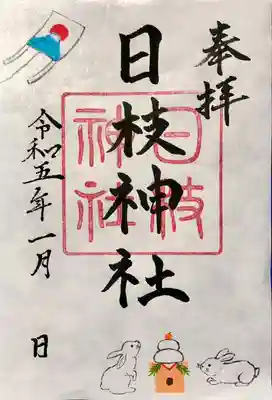 奉拝
日枝神社
日枝神社
令和五年一月 日